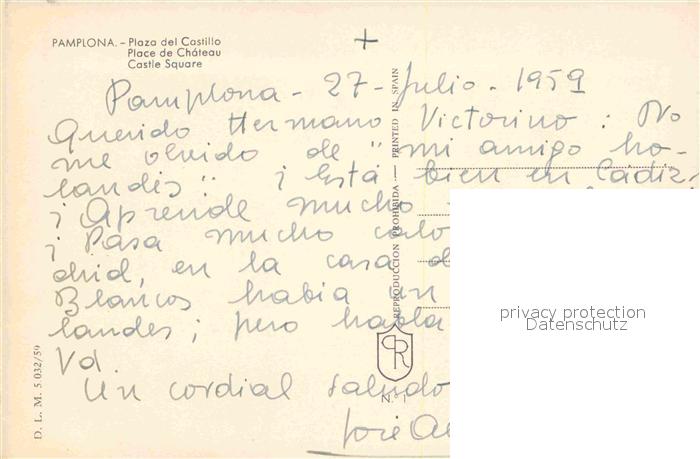 PAMPLONA. – Plaza del Castillo
Place de Château
Castle Square
+
Pamplona - 27 - Julio - 1959
Querido Hermano Victorino: No
me olvido de "mi amigo ho-
landés". ¡ Está bien en Cádiz
¡ Aprende mucho
¡ Pasa mucho calo
drid, en la casa d
Blancos había un
landés; pero habla
Vd.
Un cordial saludo
José
REPRODUCCION PROHIBIDA — PRINTED IN SPAIN
D. L. M. 5 032/59
N.º 1
privacy protection
Datenschutz